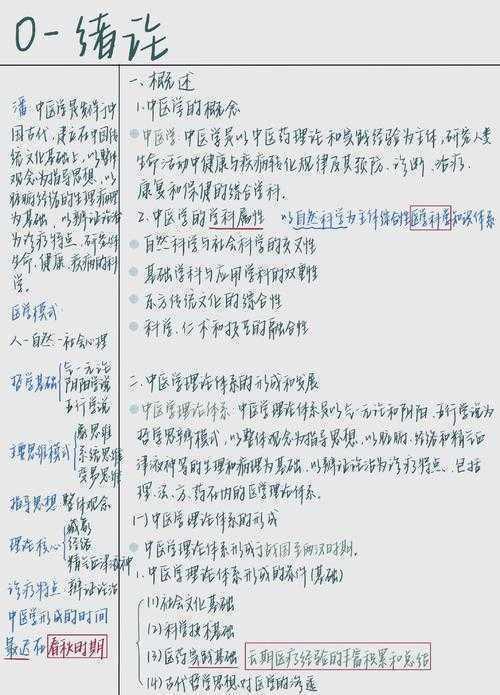 0-绪论
潘:中医学是发祥于中
国古代,建立在中国传
统文化基础上,以整体
观念为指导思想,以
脏腑经络的生理病理
为基础,以辨证论治
为诊疗特点,研究
生命、健康、疾病的科
学。
医学模式
人-自然-社会心理
哲学基础
气一元论
阴阳学说
五行学说
主要思维模式
象思维
系统思维
变易思维
指导思想 整体观念
理论核心
藏象
经络
精气血津液神
诊疗特点:辨证论治
中医学形成的时间
最迟在春秋时期
一、概述
1.中医学的概念
中医学:中医学是以中医药理论和实践经验为主体,研究人类
生命活动中健康与疾病转化规律及其预防、诊断、治疗、
康复和保健的综合学科。
2.中医学的学科属性 以自然科学为主体综合性医学科学知识体系
自然科学与社会科学的交叉性
基础学科与应用学科的双重性
东方传统文化的综合性
科学、仁术和技艺的融合性
二、中医学理论体系的形成和发展
中医学理论体系:中医学理论体系是以气一元论和阴阳、五行学说为
哲学思辨模式,以整体观念为指导思想,以脏腑、经络和精气血
津液神等的生理和病理为基础,以辨证论治为诊疗特点,包括
理、法、方、药在内的医学理论体系。
(一)中医学理论体系的形成
中医学理论体系形成于战国至两汉时期。
1.中医学理论体系形成的条件(基础)
(1)社会文化基础
(2)科学技术基础
(3)医药实践基础 长期医疗经验的丰富积累和总结
(4)古代哲学思想对医学的渗透